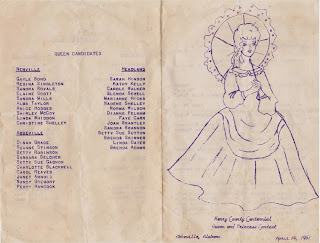 QUEEN CANDIDATES
NEWVILLE
GAYLE BOND
REGINA SINGLETON
SANDRA ROYALS
ELAINE SCOTT
SANDRA MILLS
ALMA TAYLOR
PAIGE HODGES
SHIRLEY MCCOY
LINDA WHIDDON
CHRISTINE SHELLEY
ABBEVILLE
DIANA GRACE
DYANNE STINSON
BETTY ROBINSON
BARBARA BELCHER
BETTY SUE GADDON
CHARLOTTE BLACKWELL
CAROL REEVES
JANET ARNOLD
NANCY GREGORY
PEGGY HANCOCK
HEADLAND
SARAH HINSON
KATHY KELLY
CAROLE WALKER
GLENDA SEWELL
MARIANNE HICKS
NADENE SHELLEY
NORMA WILSON
DIANNE PELHAM
FAYE CARR
JOAN BRANTLEY
SANDRA BRANNON
BETTY SUE SUTTON
BRENDA SKINNER
LINDA OATES
BRENDA ADAMS
Henry County Centennial
Queen and Princess Contest
Abbeville, Alabama
April 14, 1961